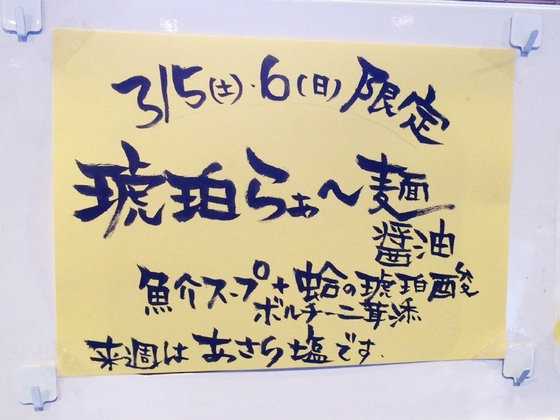 3/5(土)・6(日)限定
琥珀らぁ〜麺
醤油
魚介スープ+蛤の琥珀酸
ボルチーニ茸添え
来週はあさり塩です.